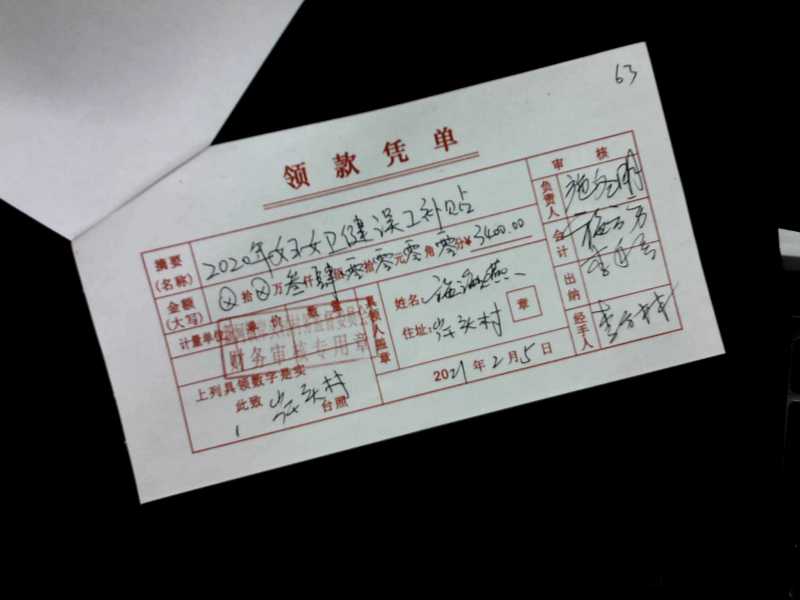 63
领款凭单
审核
摘要(名称) 2020年妇女卫健误工补贴
负责人
金额(大写) ⊗拾⊗万叁仟肆佰零拾零元零角零分¥3400.00
会计
计量单位 单价 数量
财务审核专用章
具领人盖章
姓名:施海燕
住址:岸头村
章
出纳
上列具领数字是实
此致 岸头村 台照
2021年2月5日
经手人